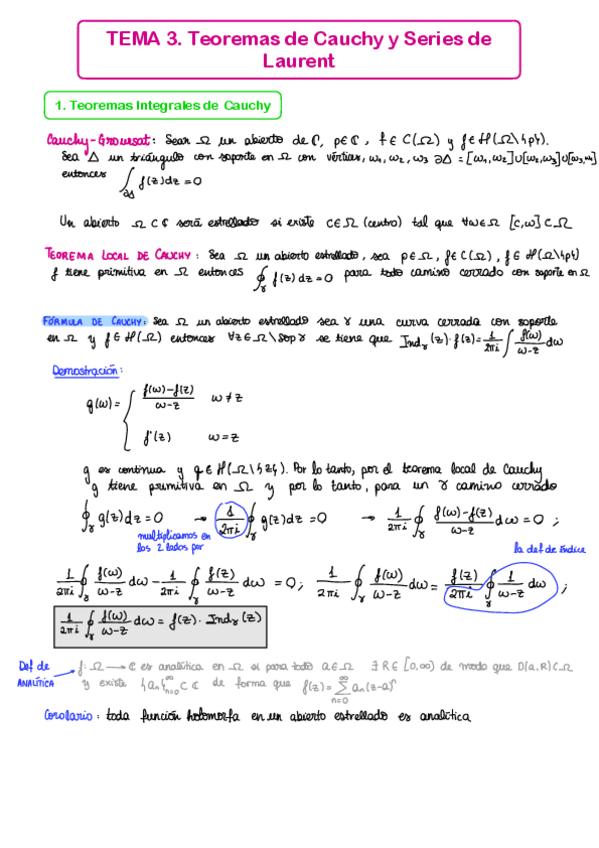 TEMA 3. Teoremas de Cauchy y Series de
Laurent
1. Teoremas Integrales de Cauchy
Cauchy-Groursat: Sean Ω un abierto de ℂ, p∈ℂ, f∈C(Ω) y f∈H(Ω\{p}).
Sea Δ un triángulo con soporte en Ω con vértices, ω₁, ω₂, ω₃ ∂Δ=[ω₁,ω₂]∪[ω₂,ω₃]∪[ω₃,ω₁]
entonces ∫_∂Δ f(z)dz=0
Un abierto Ω⊂ℂ será estrellado si existe c∈Ω (centro) tal que ∀ω∈Ω [c,ω]⊂Ω
TEOREMA LOCAL DE CAUCHY: Sea Ω un abierto estrellado, sea p∈Ω, f∈C(Ω), f∈H(Ω\{p})
f tiene primitiva en Ω entonces ∮_γ f(z)dz=0 para todo camino cerrado con soporte en Ω
FÓRMULA DE CAUCHY: Sea Ω un abierto estrellado sea γ una curva cerrada con soporte
en Ω y f∈H(Ω) entonces ∀z∈Ω\sop γ se tiene que Ind_γ(z)·f(z)=1/2πi ∫ f(ω)/ω-z dω
Demostración:
g(ω)= { f(ω)-f(z)/ω-z ω≠z
f'(z) ω=z
g es continua y g∈H(Ω\{z}). Por lo tanto, por el teorema local de Cauchy
g tiene primitiva en Ω y por lo tanto, para un γ camino cerrado
∮_γ g(z)dz=0 → 1/2πi ∮_γ g(z)dz=0 → 1/2πi ∮_γ f(ω)-f(z)/ω-z dω=0;
multiplicamos en
los 2 lados por
la def de índice
1/2πi ∮_γ f(ω)/ω-z dω - 1/2πi ∮_γ f(z)/ω-z dω = 0; 1/2πi ∮_γ f(ω)/ω-z dω = f(z)/2πi ∮_γ 1/ω-z dω;
1/2πi ∮_γ f(ω)/ω-z dω = f(z)·Ind_γ(z)
Def de ANALÍTICA
f:Ω→ℂ es analítica en Ω si para todo a∈Ω ∃R∈[0,∞) de modo que D(a,R)⊂Ω
y existe {aₙ}_{n=0}^∞⊂ℂ de forma que f(z)=∑_{n=0}^∞ aₙ(z-a)ⁿ
Corolario: toda función holomorfa en un abierto estrellado es analítica